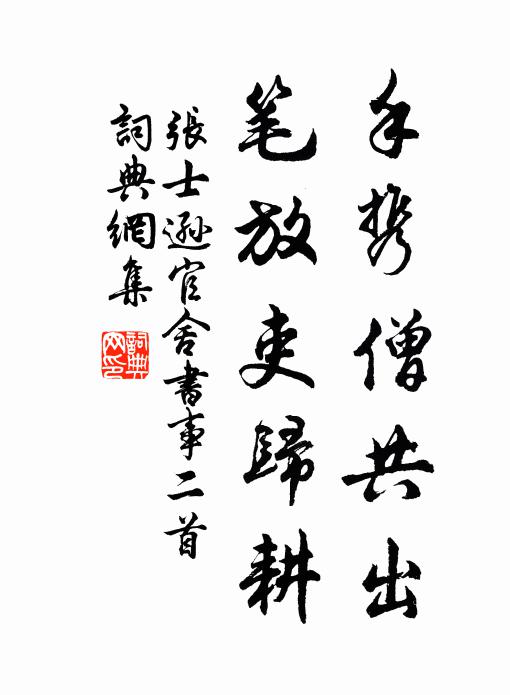 手携僧共出
笔放吏歸耕
張士遜官舍書事二首
詞典網集
詞典
网印